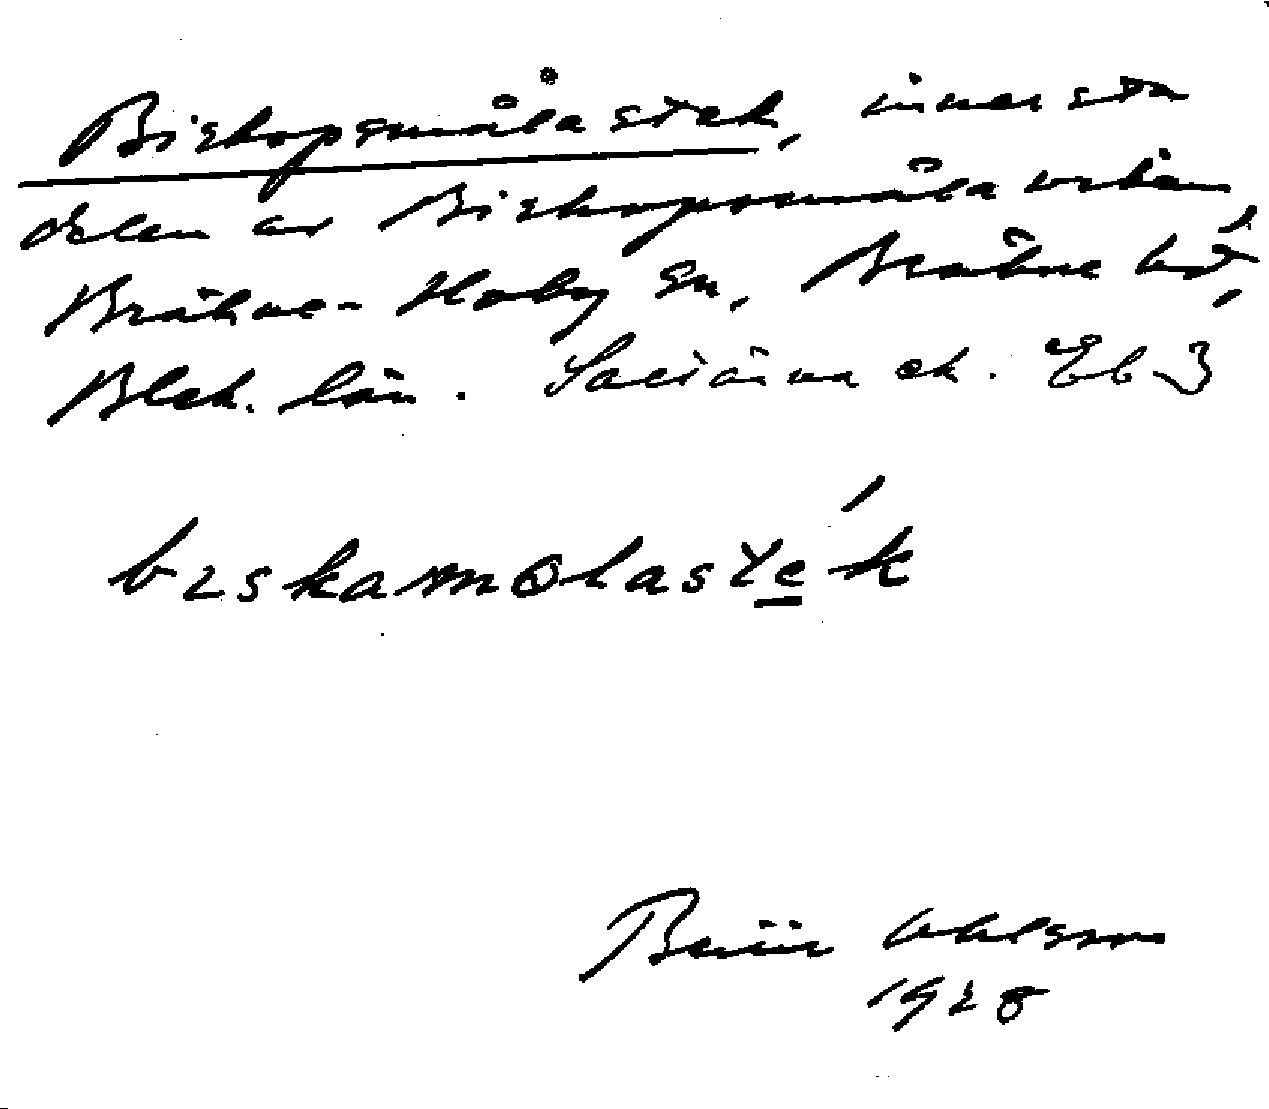 Biskopsmåla stek, innersta
delen av Biskopsmåla viken,
Bräkne-Hoby sn, Bräkne hd,
Blek. län. ek. Eb 3
bıskamolaste̲k
Ohlsson
1928